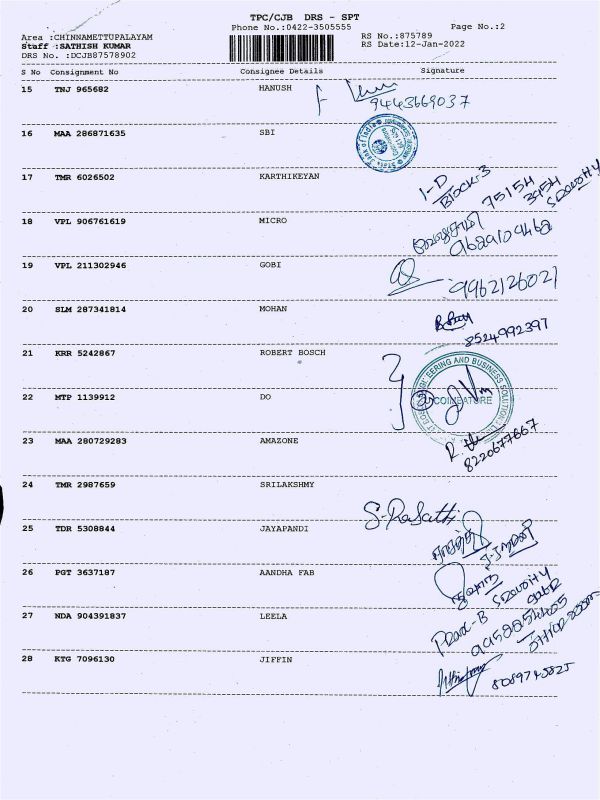 TPC/CJB DRS - SPT
Phone No.:0422-3505555
Page No.:2
Area :CHINNAMETTUPALAYAM
RS No.:875789
Staff :SATHISH KUMAR
RS Date:12-Jan-2022
DRS No. :DCJB87578902
S No Consignment No Consignee Details Signature
15 TNJ 965682 HANUSH
9443669037
16 MAA 286871635 SBI
17 TMR 6026502 KARTHIKEYAN
1-D
Block-3
75154
18 VPL 906761619 MICRO
19 VPL 211302946 GOBI
9962126021
20 SLM 287341814 MOHAN
8524992397
21 KRR 5242867 ROBERT BOSCH
EERING AND BUSINESS SOLUTIONS
COIMBATORE
22 MTP 1139912 DO
23 MAA 280729283 AMAZONE
8220677667
24 TMR 2987659 SRILAKSHMY
S-Rasathi
25 TDR 5308844 JAYAPANDI
26 PGT 3637187 AANDHA FAB
27 NDA 904391837 LEELA
28 KTG 7096130 JIFFIN